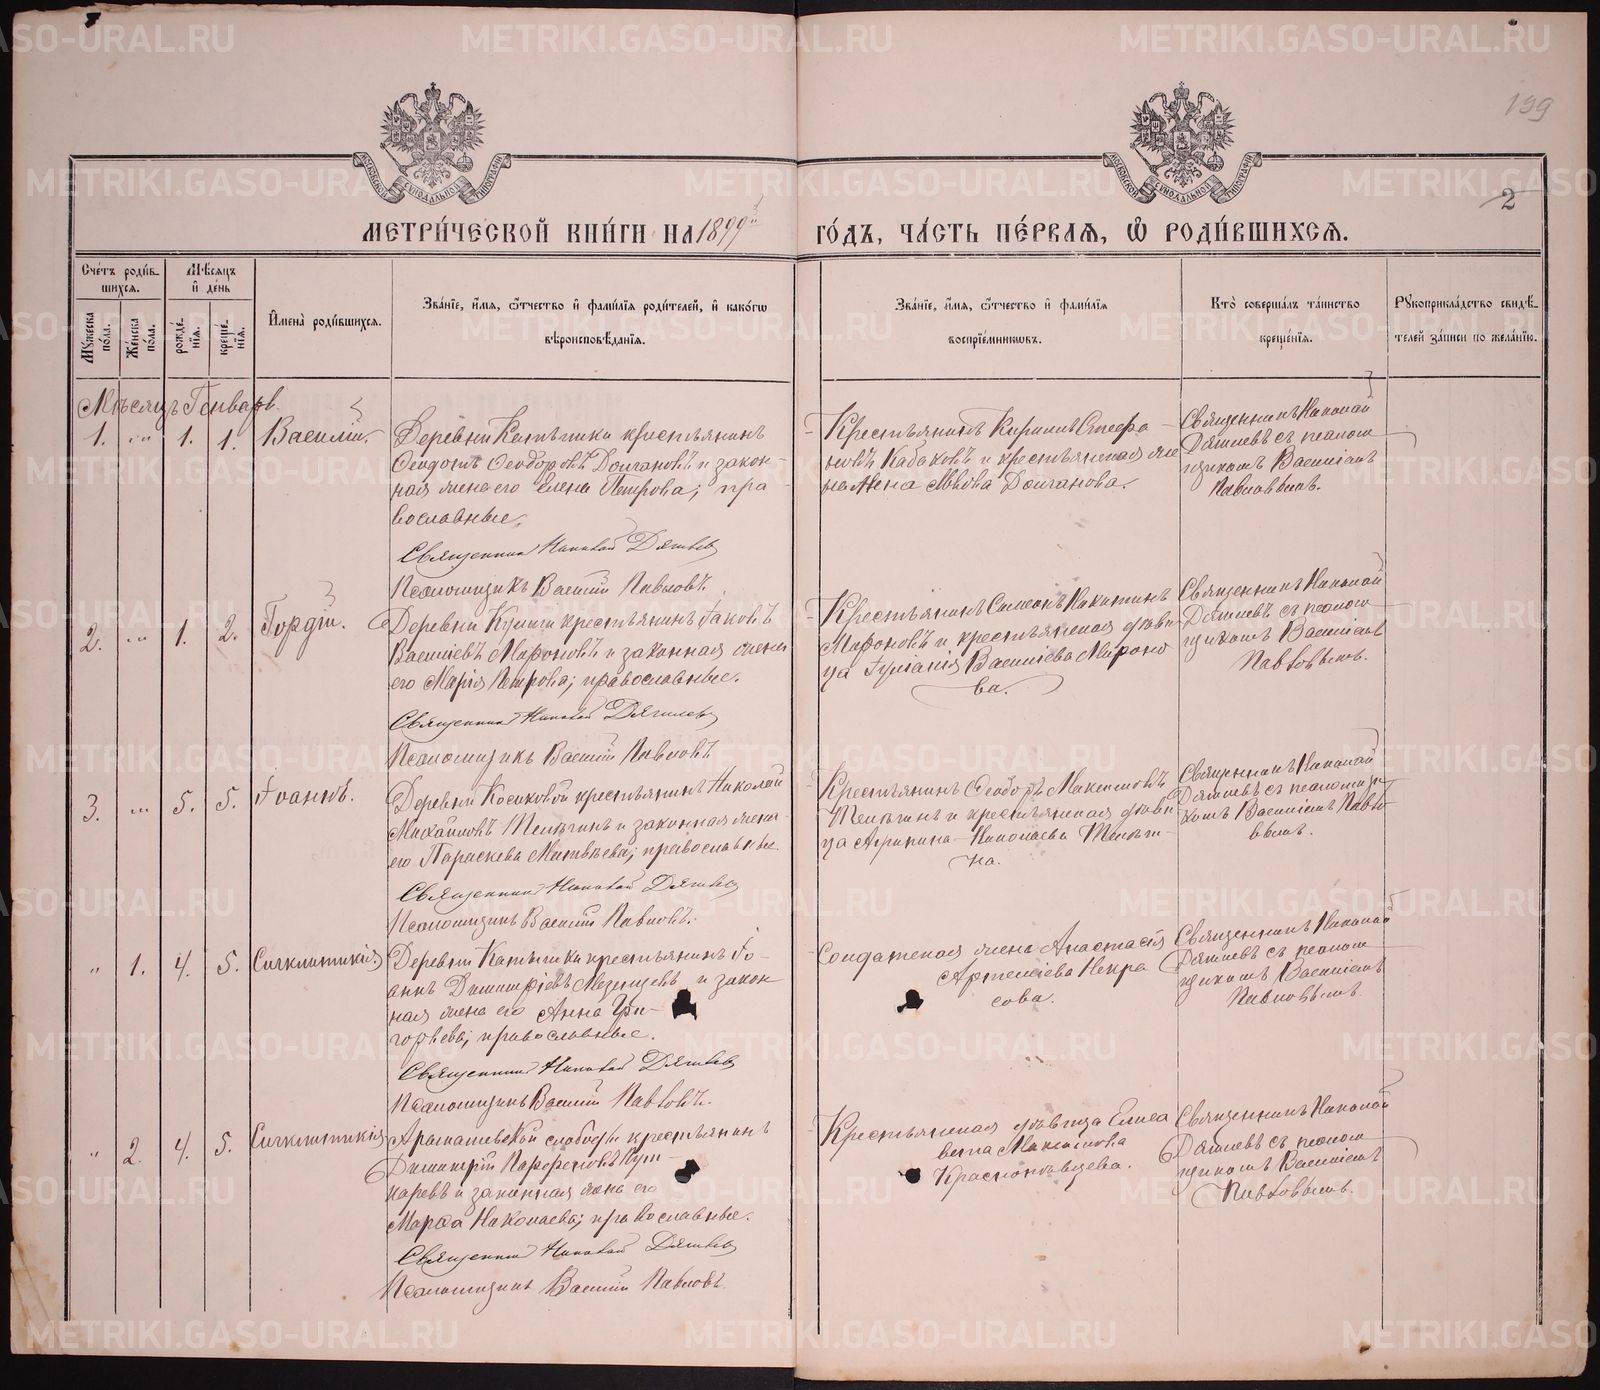 199
2
МЕТРИ́ЧЕСКОЙ КНИ́ГИ НА 1899й
ГО́ДЪ, ЧА́СТЬ ПЕ́РВАѦ, Ѡ҆ РОДИ́ВШИХСѦ.
Сче́тъ роди́в-
шихсѧ.
Мꙋ́жеска по́ла.
Же́нска по́ла.
Мѣ́сѧцъ
и҆ де́нь
рожде́нїѧ.
креще́нїѧ.
И҆мена̀ роди́вшихсѧ.
Зва́нїе, и҆́мѧ, ѻ҆́тчество и҆ фами́лїѧ роди́телей, и҆ како́гѡ
вѣроисповѣ́данїѧ.
Зва́нїе, и҆́мѧ, ѻ҆́тчество и҆ фами́лїѧ
воспрїе́мникѡвъ.
Кто̀ соверша́лъ та́инство
креще́нїѧ.
Рꙋкоприкла́дство свидѣ́-
телей за́писи по жела́нїю.
Мѣсяцъ Генварь.
1. „ 1. 1. Василій.
Деревни Катышки крестьянинъ
Ѳеодотъ Ѳеодоровъ Долгановъ и закон-
ная жена его Елена Петрова; пра-
вославные.
Священникъ Николай Дягилевъ
Псаломщикъ Василій Павловъ.
Крестьянинъ Кирилъ Стефа-
новъ Кабаковъ и крестьянская же
на Анна Львова Долганова.
Священникъ Николай
Дягилевъ съ псалом
щикомъ Василіемъ
Павловымъ.
2. „ 1. 2. Гордій.
Деревни крестьянинъ Іаковъ
Василіевъ Мироновъ и законная жена
его Марія Петрова; православные.
Священникъ Николай Дягилевъ
Псаломщикъ Василій Павловъ
Крестьянинъ Симеонъ Никитинъ
Мироновъ и крестьянская дѣви
ца Іуліанія Василіева Мироно
ва.
Священникъ Николай
Дягилевъ съ псалом
щикомъ Василіемъ
Павловымъ.
3. „ 5. 5. Іоаннъ.
Деревни Косиковой крестьянинъ Николай
Михаиловъ Телѣгинъ и законная жена
его Параскева Матвѣева; православные.
Священникъ Николай Дягилевъ
Псаломщикъ Василій Павловъ.
Крестьянинъ Ѳеодоръ Максимовъ
Телѣгинъ и крестьянская дѣви
ца Агрипина Николаева Телѣги-
на.
Священникъ Николай
Дягилевъ съ псаломщи
комъ Василіемъ Павло
вымъ.
„ 1. 4. 5. Синклитикія
Деревни Катышки крестьянинъ Іо-
аннъ Димитріевъ и закон
ная жена его Анна Гри-
горьева; православные.
Священникъ Николай Дягилевъ
Псаломщикъ Василій Павловъ.
Солдатская жена Анастасія
Артеміева Некра
сова.
Священникъ Николай
Дягилевъ съ псалом
щикомъ Василіемъ
Павловымъ.
„ 2. 4. 5. Синклитикія
Арамашевской слободы крестьянинъ
Димитрій Парфеновъ Куш-
наревъ и законная жена его
Марѳа Николаева; православные.
Священникъ Николай Дягилевъ
Псаломщикъ Василій Павловъ.
Крестьянская дѣвица Елиса
вета Максимова
Священникъ Николай
Дягилевъ съ псалом
щикомъ Василіемъ
Павловымъ.
METRIKI.GASO-URAL.RU